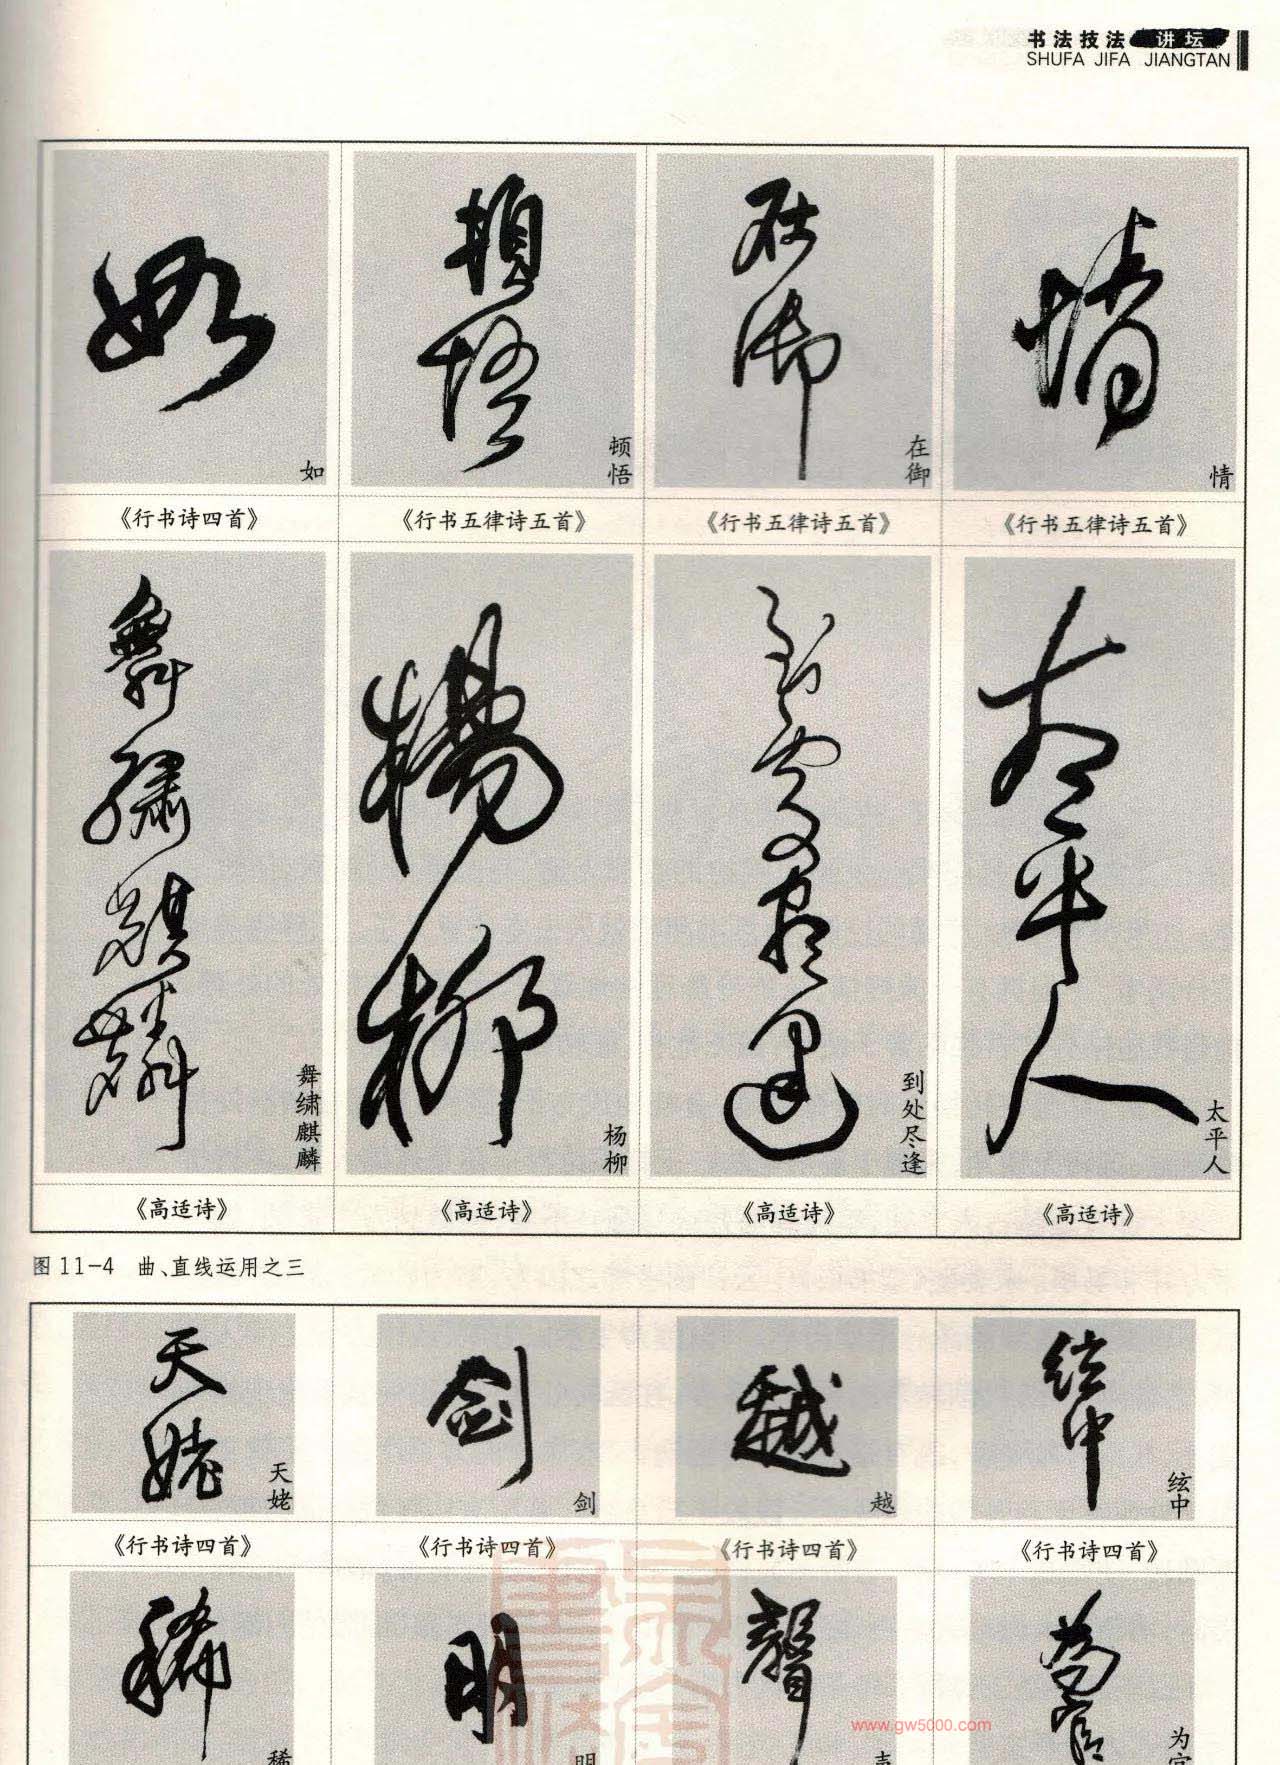 书法技法 讲坛
SHUFA JIFA JIANGTAN
如
顿悟
在御
情
《行书诗四首》
《行书五律诗五首》
《行书五律诗五首》
《行书五律诗五首》
舞绣麒麟
杨柳
到处尽逢
太平人
《高适诗》
《高适诗》
《高适诗》
《高适诗》
图 11-4 曲、直线运用之三
天姥
剑
越
绞中
《行书诗四首》
《行书诗四首》
《行书诗四首》
《行书诗四首》
稀
明
声
为官
www.gw5000.com